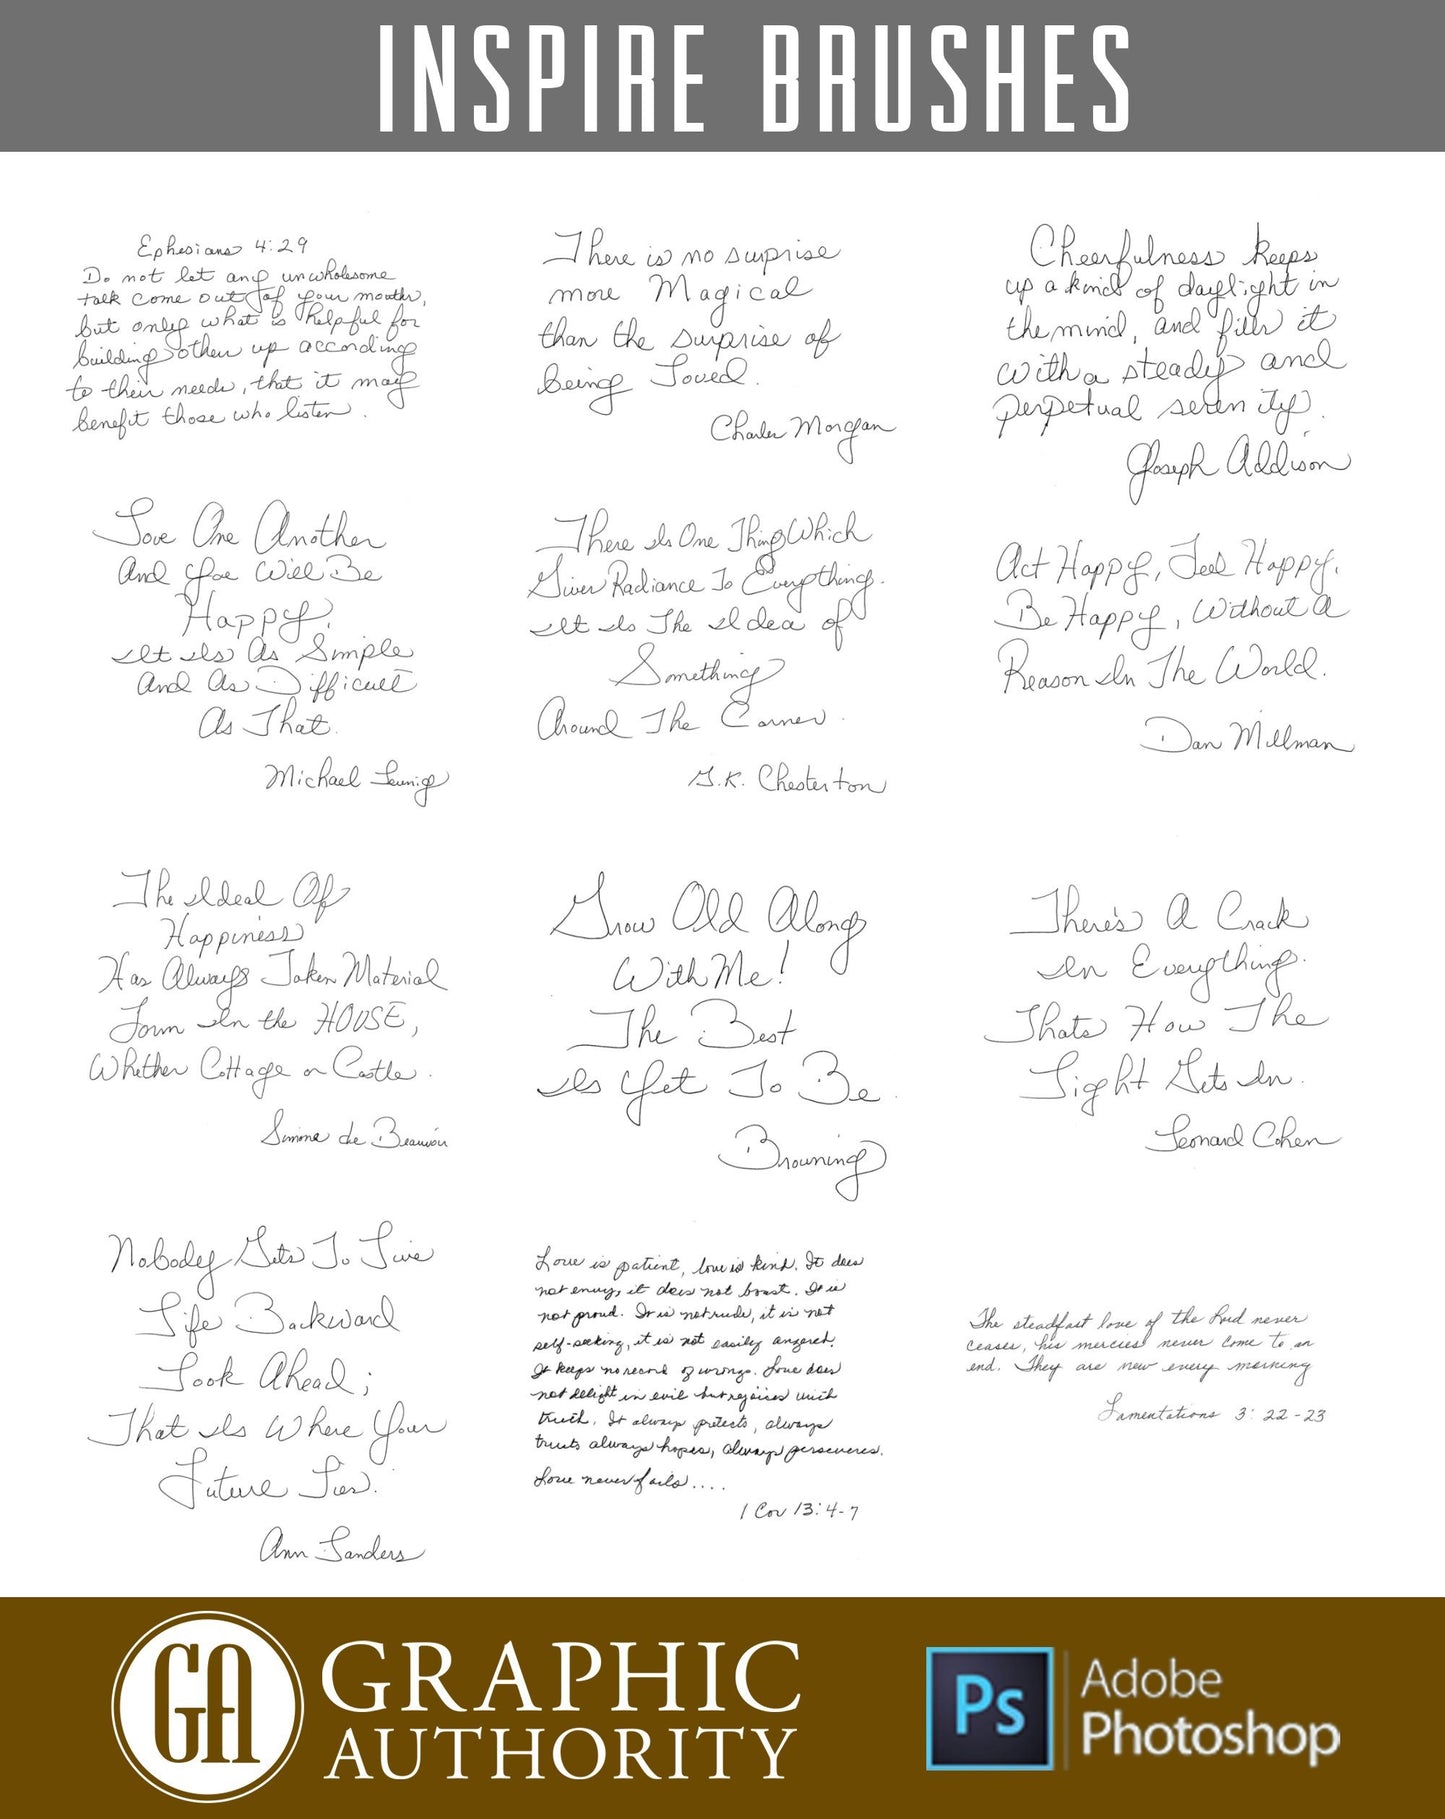 INSPIRE BRUSHES
Ephesians 4:29
Do not let any unwholesome
talk come out of your mouths,
but only what is helpful for
building others up according
to their needs, that it may
benefit those who listen.
There is no surprise
more Magical
than the surprise of
being Loved.
Charles Morgan
Cheerfulness keeps
up a kind of daylight in
the mind, and fills it
with a steady and
perpetual serenity.
Joseph Addison
Love One Another
And You Will Be
Happy.
It Is As Simple
And As Difficult
As That.
Michael Leunig
There Is One Thing Which
Gives Radiance To Everything.
It Is The Idea of
Something
Around The Corner.
G.K. Chesterton
Act Happy, Feel Happy,
Be Happy, Without A
Reason In The World.
Dan Millman
The Ideal Of
Happiness
Has Always Taken Material
Form In the HOUSE,
Whether Cottage or Castle.
Simone de Beauvoir
Grow Old Along
With Me!
The Best
Is Yet To Be.
Browning
There's A Crack
In Everything.
Thats How The
Light Gets In.
Leonard Cohen
Nobody Gets To Live
Life Backward
Look Ahead;
That Is Where Your
Future Lies.
Ann Landers
Love is patient, love is kind. It does
not envy, it does not boast. It is
not proud. It is not rude, it is not
self-seeking, it is not easily angered.
It keeps no record of wrongs. Love does
not delight in evil but rejoices with
truth. It always protects, always
trusts always hopes, always perseveres.
Love never fails....
1 Cor 13:4-7
The steadfast love of the Lord never
ceases, his mercies never come to an
end. They are new every morning
Lamentations 3:22-23
GA
GRAPHIC
AUTHORITY
Ps
Adobe
Photoshop